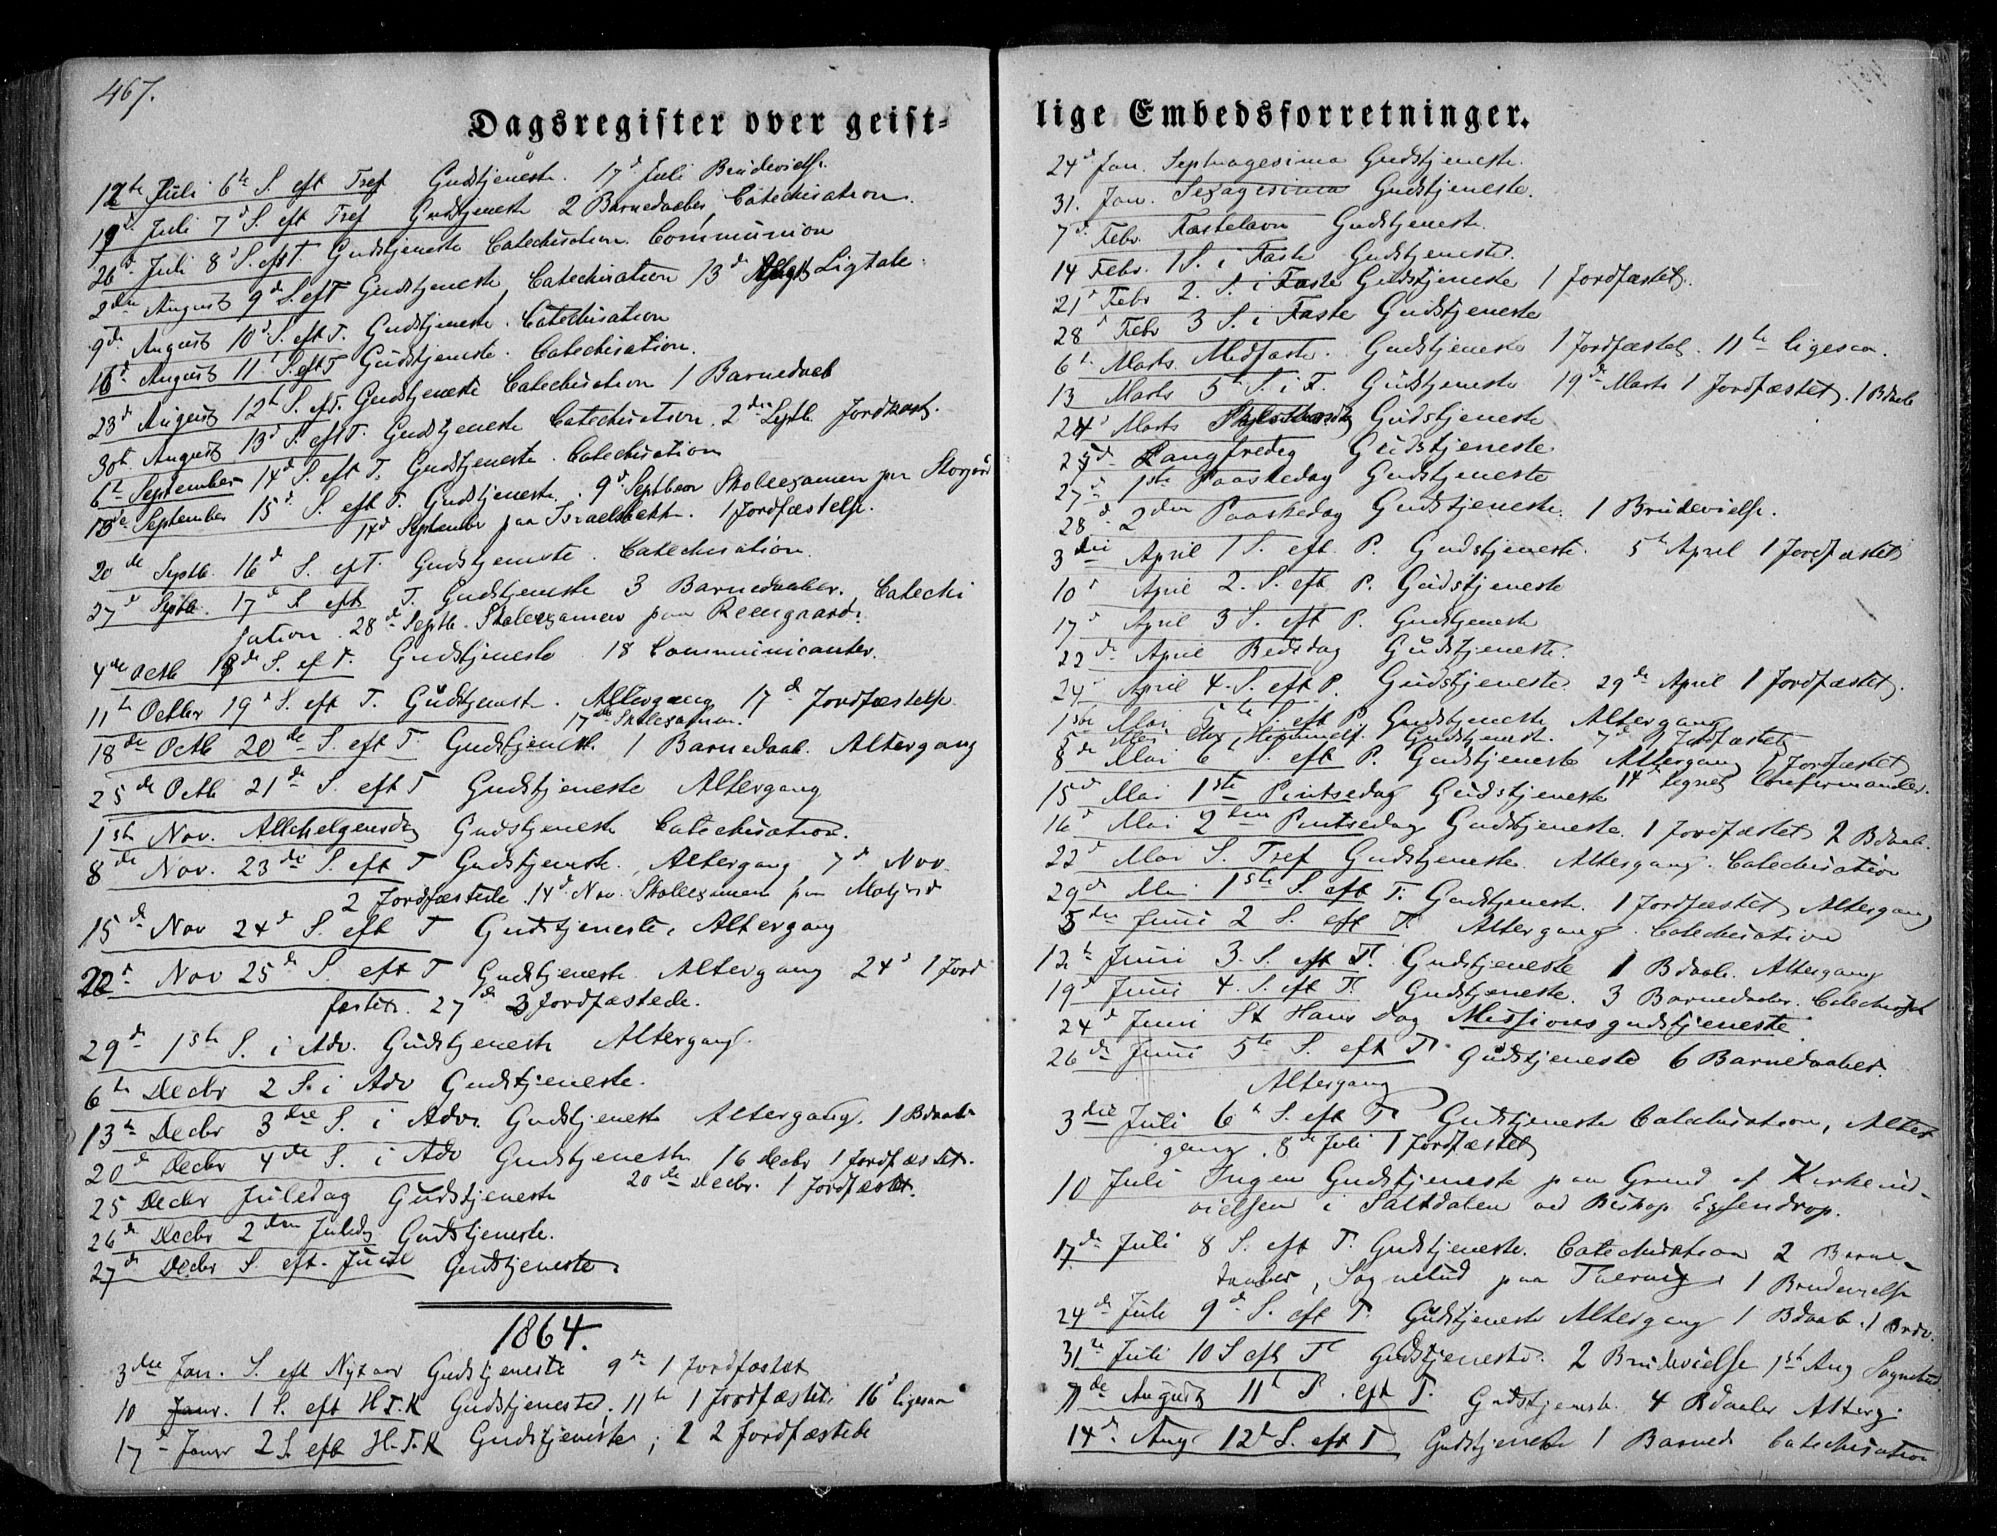 467.
Dagsregister over geist-
12te Juli 6te S. eft Tref Gudstjeneste. 17d Juli Brudevielse.
19d Juli 7d S. eft Tref Gudstjeneste 2 Barnedaaber, Catechisation.
26d Juli 8d S. eft T Gudstjeneste Catechisation. Communion
2den August 9d S. eft T Gudstjeneste, Catechisation 13d Ligtale.
9de August 10d S. eft T. Gudstjeneste. Catechisation
16d August 11t S. eft T Gudstjeneste. Catechisation.
23d August 12te S. eft. Gudstjeneste Catechisation 1 Barnedaab
30te August 13d S. eft T. Gudstjeneste Catechisation. 2den Septb. Jordkast.
6te September 14d S. eft T. Gudstjeneste. Catechisation
13de September 15d S. eft T. Gudstjeneste. 9d Septber Skoleexamen paa Storjord
14d September paa Israelsbakk. 1 Jordfæstelse.
20de Septb. 16d S. eft T. Gudstjeneste. Catechisation.
27d Septb. 17d S. eft T. Gudstjeneste 3 Barnedaaber. Catechi
sation. 28d Septb. Skoleexamen paa Reengaard.
4de Octb 18de S. ef T. Gudstjeneste 18 Communicanter.
11te Octber 19d S. eft T. Gudstjeneste. Altergang 17d Jordfæstelse
17de Skoleexamen.
18de Octb 20de S. eft T. Gudstjeneste. 1 Barnedaab. Altergang
25de Octb 21de S. eft T Gudstjeneste Altergang
1ste Nov. Allehelgensdag Gudstjeneste Catechisation.
8de Nov. 23de S. eft T Gudstjeneste. Altergang 7d Nov.
2 Jordfæstede. 14d Nov. Skoleexamen paa
15de Nov 24d S. eft T Gudstjeneste, Altergang
22d Nov 25de S. eft T Gudstjeneste Altergang 24d 1 Jord
fæstet. 27de 3 Jordfæstede.
29de 1ste S. i Adv. Gudstjeneste Altergang.
6te Decbr 2 S. i Adv Gudstjeneste.
13te Decbr 3die S. i Adv. Gudstjeneste Altergang. 1 Bdaab
20de Decbr 4de S. i Adv Gudstjeneste 16 Decbr 1 Jordfæstet.
20de Decbr. 1 Jordfæstet.
25 Decbr Juledag Gudstjeneste
26de Decbr 2den Juledag Gudstjeneste.
27de Decbr S. eft. Juul Gudstjeneste.
1864.
3die Jan. S. eft Nytaar Gudstjeneste 9de 1 Jordfæstet
10 Janr. 1 S. eft H.T.K Gudstjeneste. 11te 1 Jordfæstet. 16d ligesaa
17d Janr 2 S. eft H.T.K Gudstjeneste; 2 Jordfæstede
lige Embedsforretninger.
24d Jan. Septuagesima Gudstjeneste.
31. Jan. Sexagesima Gudstjeneste.
7d Febr. Fastelavn Gudstjeneste.
14 Febr. 1 S. i Faste Gudstjeneste.
21d Febr 2. S. i Faste Gudstjeneste 1 Jordfæstet.
28d Febr 3 S. i Faste Gudstjeneste
6te Marts. Midfaste. Gudstjeneste 1 Jordfæstet. 11te ligesaa.
13 Marts 5te S. i F. Gudstjeneste 19de Marts 1 Jordfæstet. 1 Bdaab
24d Marts Skjertorsdag Gudstjeneste
25d Langfredag Gudstjeneste
27d 1ste Paaskedag Gudstjeneste
28d. 2den Paaskedag Gudstjeneste. 1 Brudevielse.
3die April 1 S. eft. P. Gudstjeneste. 5te April 1 Jordfæstet
10d April 2. S. eft P. Gudstjeneste
17d April 3 S. eft P. Gudstjeneste
22de April Bededag Gudstjeneste.
24d April 4. S. eft P. Gudstjeneste. 29de April 1 Jordfæstet.
1ste Mai 5te S. eft P. Gudstjeneste Altergang
5te Mai Chr. Himmelf. Gudstjeneste. 7d Jordfæstet
8de Mai 6 S. eft P. Gudstjeneste Altergang 1 Jordfæstet
15d Mai 1ste Pintsedag Gudstjeneste 14d Confirmander.
16d Mai 2den Pintsedag Gudstjeneste. 1 Jordfæstet 2 Bdaab.
22d Mai S. Tref Gudstjeneste Altergang. Catechisation
29d Mai 1ste S. eft T. Gudstjeneste. 1 Jordfæstet Altergang
5de Juni 2 S. eft T. Altergang. Catechisation
12te Juni 3. S. eft T. Gudstjeneste 1 Bdaab. Altergang
19d Juni 4. S. eft T. Gudstjeneste. 3 Barnedaaber. Catechisat
24d Juni St Hans Dag Missionsgudstjeneste.
26de Juni 5te S. eft T. Gudstjeneste 6 Barnedaaber.
Altergang
3die Juli 6te S. eft T. Gudstjeneste Catechisation, Alter
gang. 8de Juli 1 Jordfæstet
10 Juli Ingen Gudstjeneste paa Grund af Kirkeind-
vielsen i Saltdalen ved Biskop Essendrop.
17de Juli 8 S. eft T. Gudstjeneste. Catechisation 2 Barne-
daaber, Sognebud paa 1 Brudevielse
24de Juli 9de S. eft T. Gudstjeneste Altergang 1 Bdaab. 1 Brdv.
31te Juli 10 S eft T Gudstjeneste. 2 Brudevielse 1ste Aug Sognebud.
7de August 11te S. eft T. Gudstjeneste. 4 Bdaaber Alterg.
14d Aug 12te S. eft T Gudstjeneste 1 Barned Catechisation